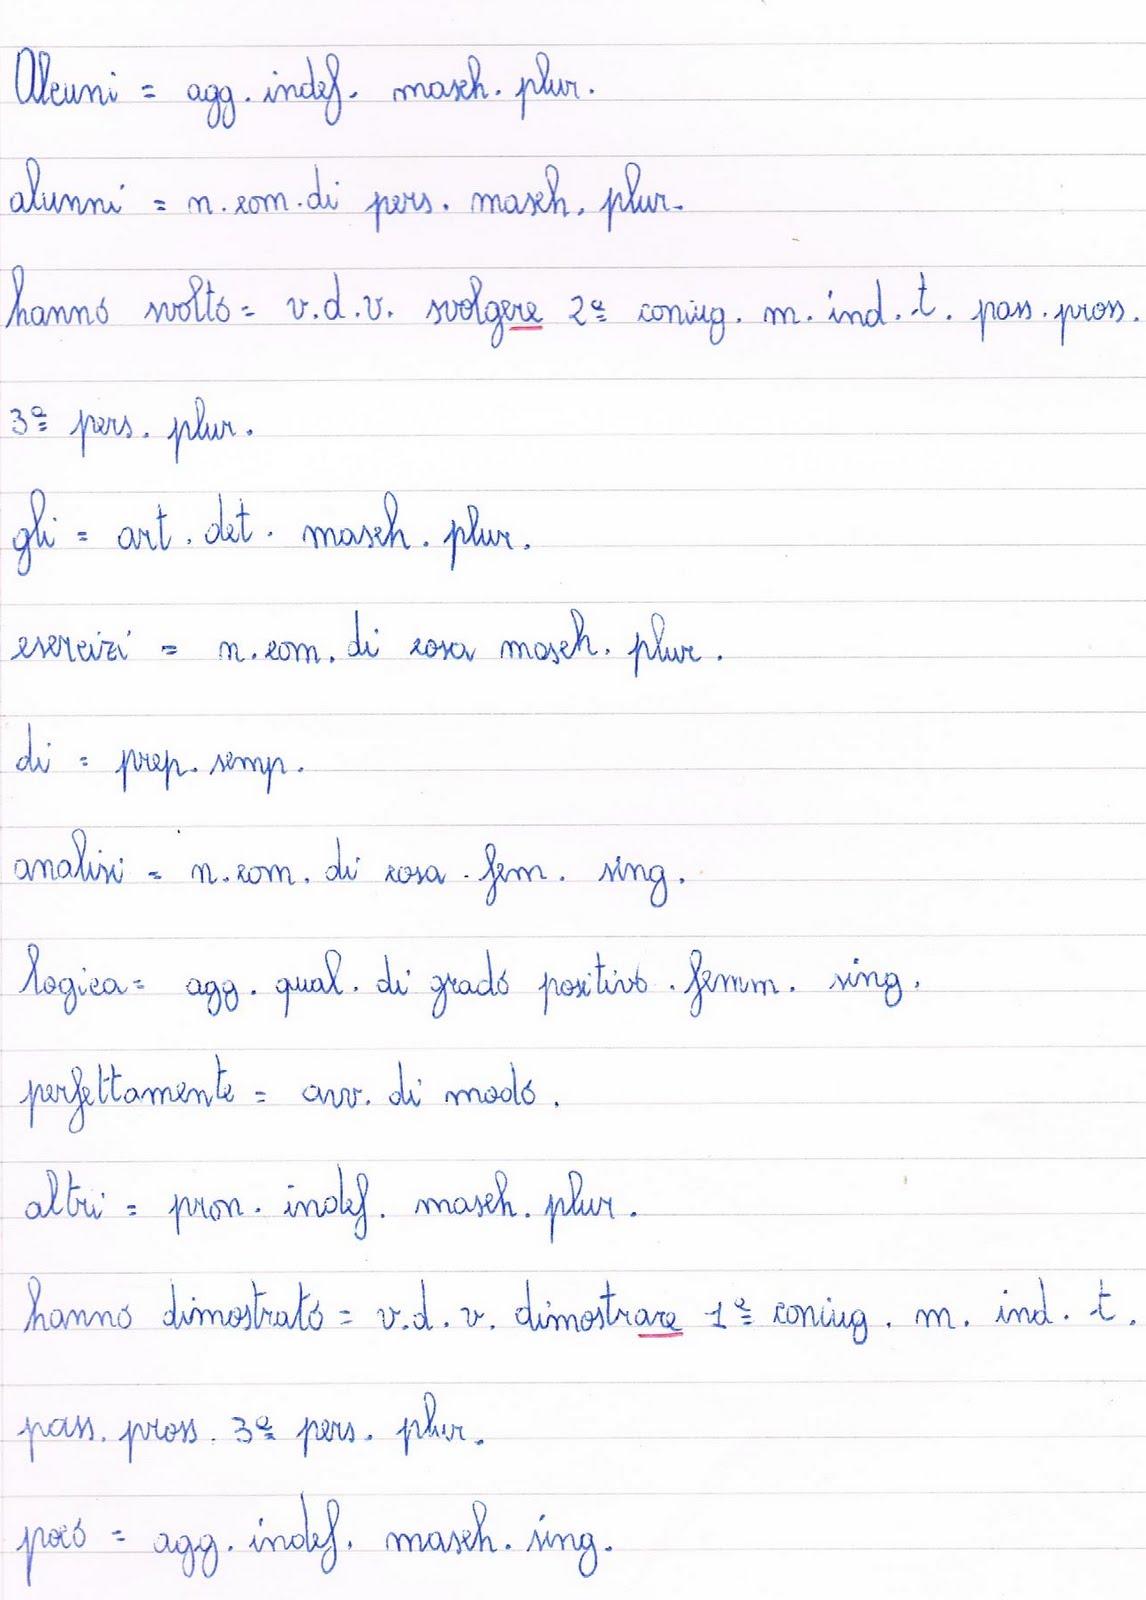 Alcuni = agg. indef. masch. plur.
alunni = n. com. di pers. masch. plur.
hanno svolto = v. d. v. svolgere 2ª coniug. m. ind. t. pass. pross.
3ª pers. plur.
gli = art. det. masch. plur.
esercizi = n. com. di cosa masch. plur.
di = prep. semp.
analisi = n. com. di cosa . fem. sing.
logica = agg. qual. di grado positivo . femm. sing.
perfettamente = avv. di modo.
altri = pron. indef. masch. plur.
hanno dimostrato = v. d. v. dimostrare 1ª coniug. m. ind. t.
pass. pross. 3ª pers. plur.
poco = agg. indef. masch. sing.